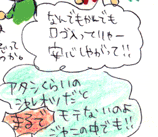 なんでもかんでも
ロゴ入ってりゃー
安心しやがって!!
アタシくらいの
シャレオツだと
まるで
モテないのよ
ジャニの中でも!!